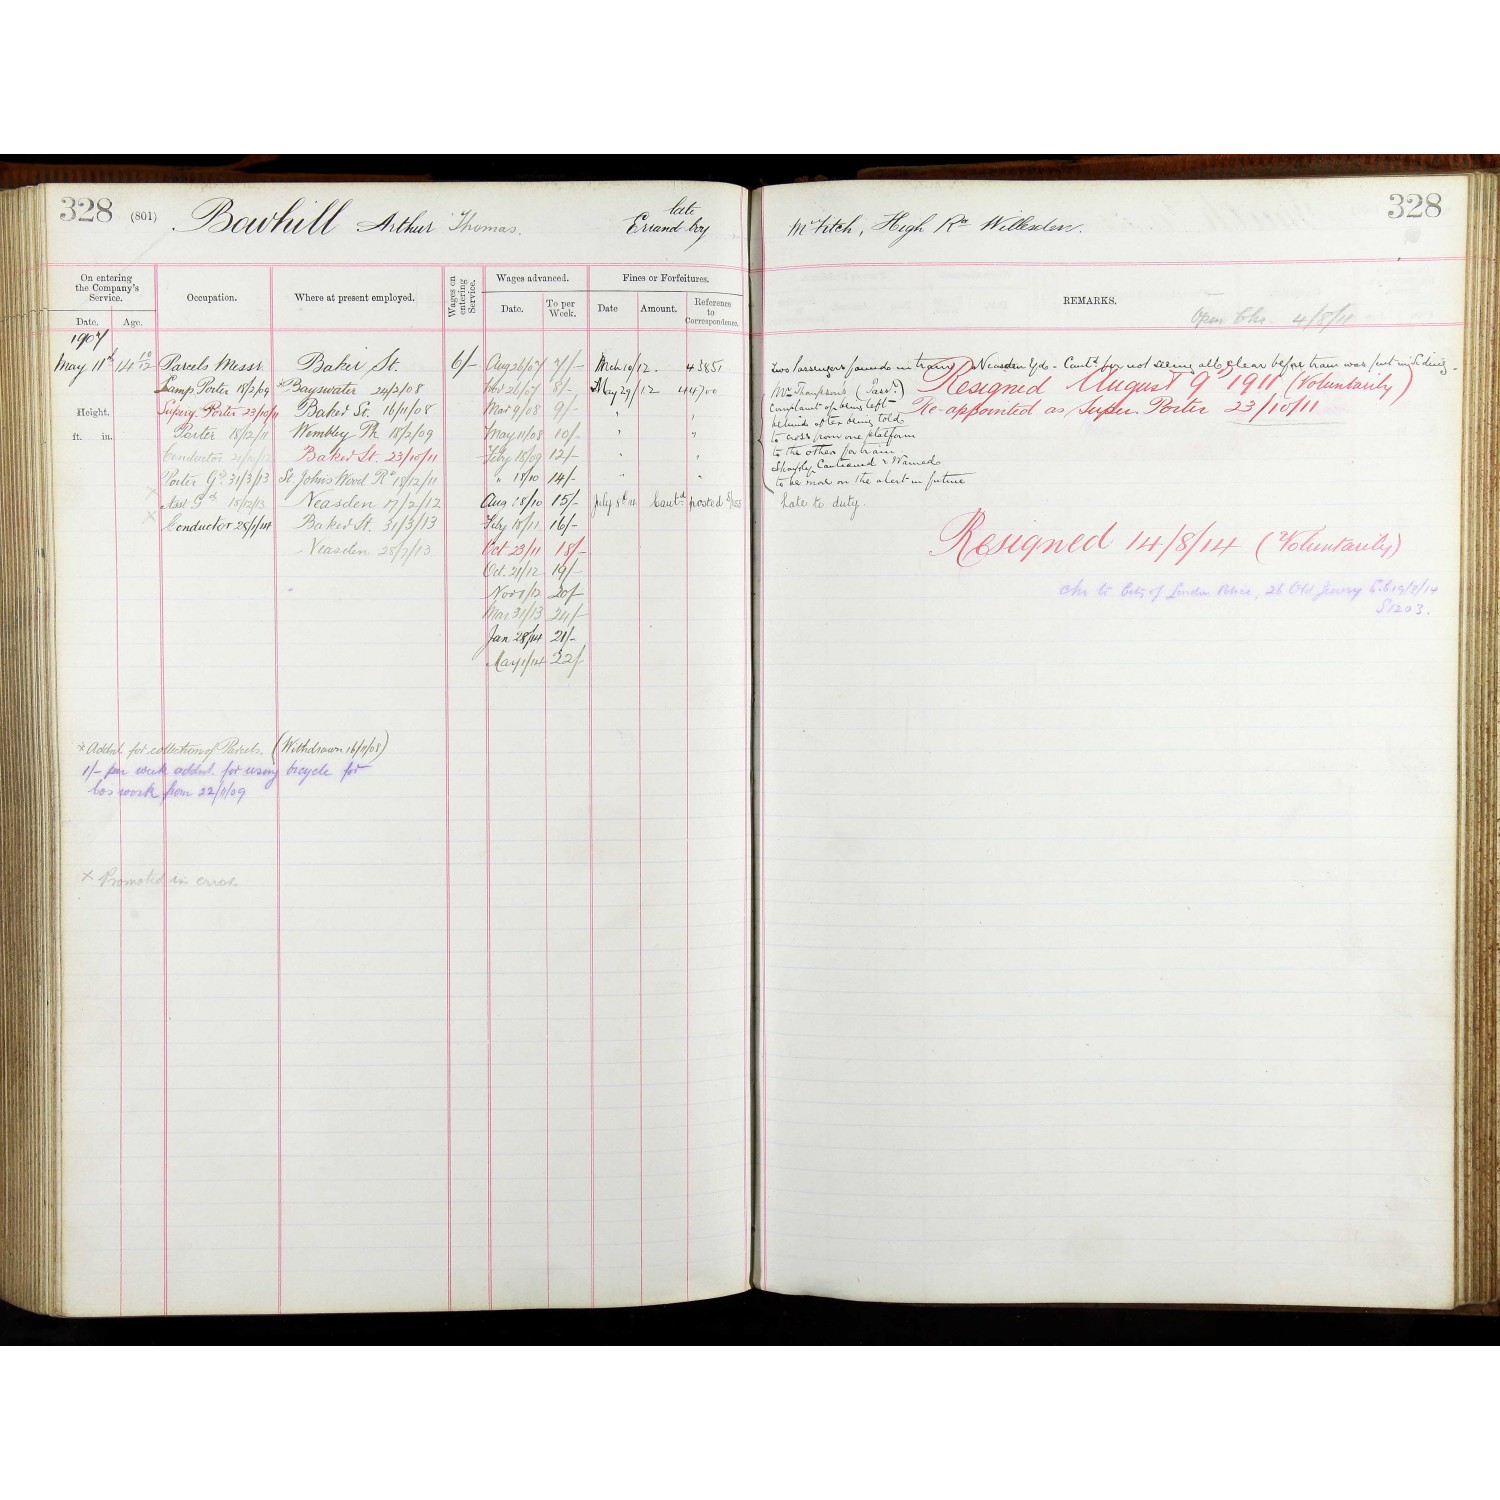 328 (801) Bowhill Arthur Thomas. late
Errand boy
On entering
the Company's
Service.
Date. Age.
Occupation.
Where at present employed.
Wages on
entering
Service.
Wages advanced.
Date. To per
Week.
Fines or Forfeitures.
Date Amount. Reference
to
Correspondence.
1907
May 11th 14 10/12 Parcels Messr. Baker St. 6/- Aug 26/07 7/- Mch 10/12. 43851
Lamp Porter 18/2/09 × Bayswater 24/2/08 Nov 26/07 8/- May 29/12 44700
Height. Supery. Porter 23/10/11 Baker St. 16/11/08 Mar 9/08 9/- " "
ft. in. Porter 18/12/11 Wembley Pk 18/2/09 May 11/08 10/- " "
Conductor Baker St. 23/10/11 Feby 18/09 12/- " "
Porter Gd. 31/3/13 St. Johns Wood Rd 18/12/11 " 18/10 14/-
× Asst Gd 18/12/13 Neasden 17/2/12 Aug 18/10 15/- July 8th 14 Cautd posted
× Conductor 28/1/14 Baker St. 31/3/13 Feby 18/11 16/-
Neasden 28/7/13 Oct 23/11 18/-
Oct. 21/12 19/-
Nov 1/12 20/-
Mar 31/13 24/-
Jan 28/14 21/-
May 1/14 22/-
× Addnl for collection of Parcels. (Withdrawn 16/11/08)
1/- per week addnl. for using bicycle for
Cos work from 22/11/09
× Promoted in error.
328
Mr Fitch, High Rd Willesden.
REMARKS.
Open Chr. 4/8/11
Two Passengers found in train Neasden Yd. - Cautd for not seeing all clear before train was put in Siding.
Resigned August 9th 1911 (Voluntarily)
Re-appointed as Super. Porter 23/10/11
Mr Thompson's (Passr)
complaint of being left
behind after being told
to cross from one platform
to the other for train
Sharply Cautioned & Warned
to be more on the alert in future
Late to duty.
Resigned 14/8/14 (Voluntarily)
chr to City of London Police, 26 Old Jewry E.C. 19/8/14
S1203.